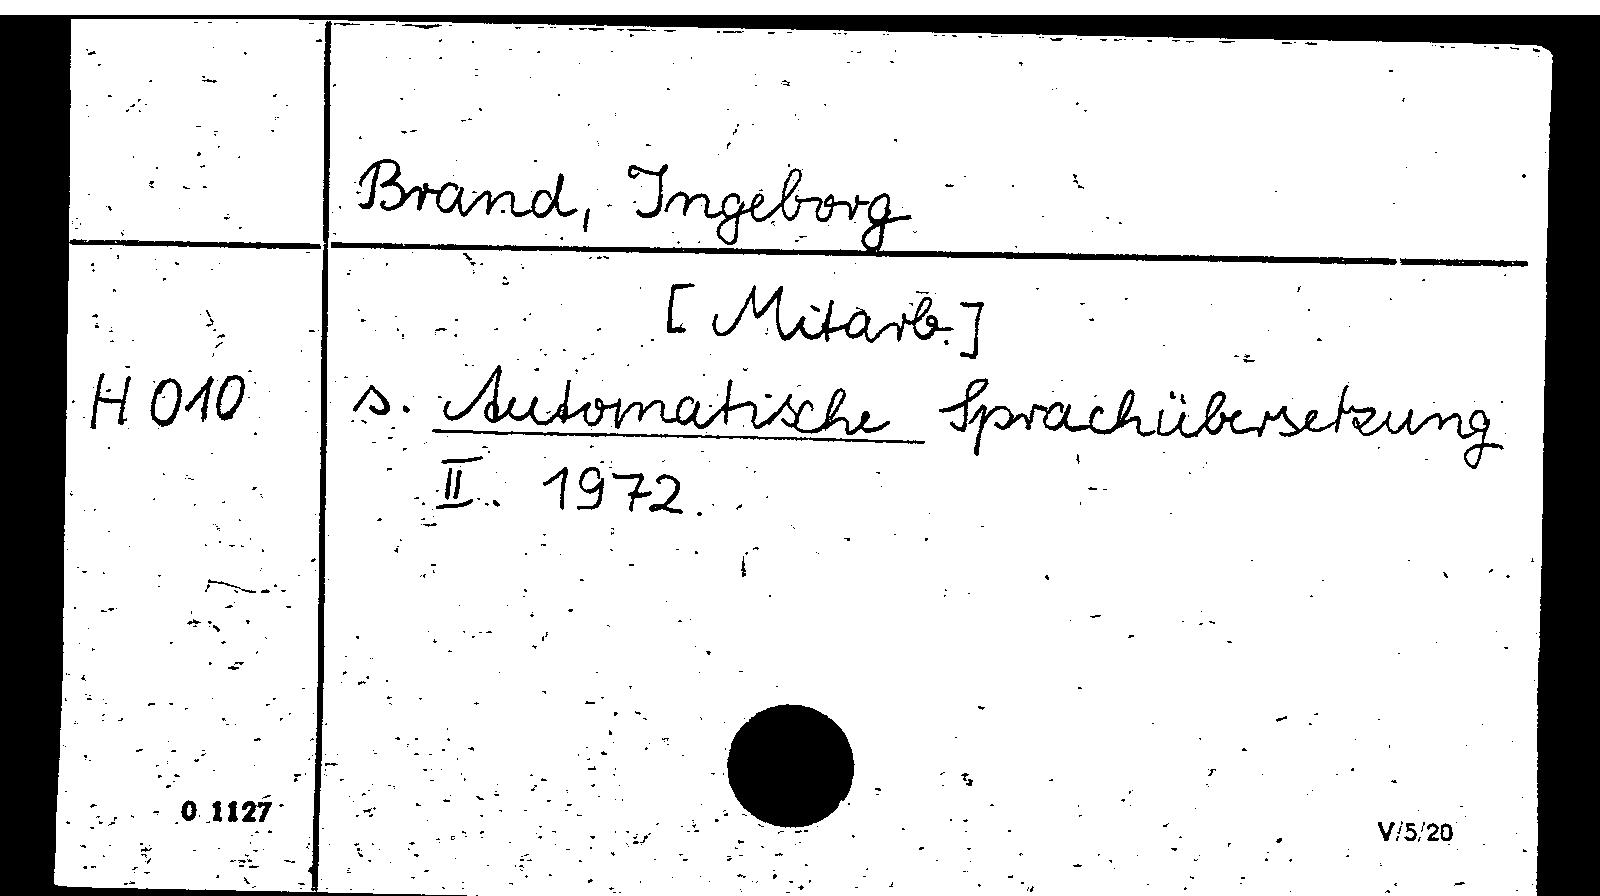 Brand, Ingeborg
[Mitarb.]
H 010 s. Automatische Sprachübersetzung
II. 1972.
0 1127
V/5/20